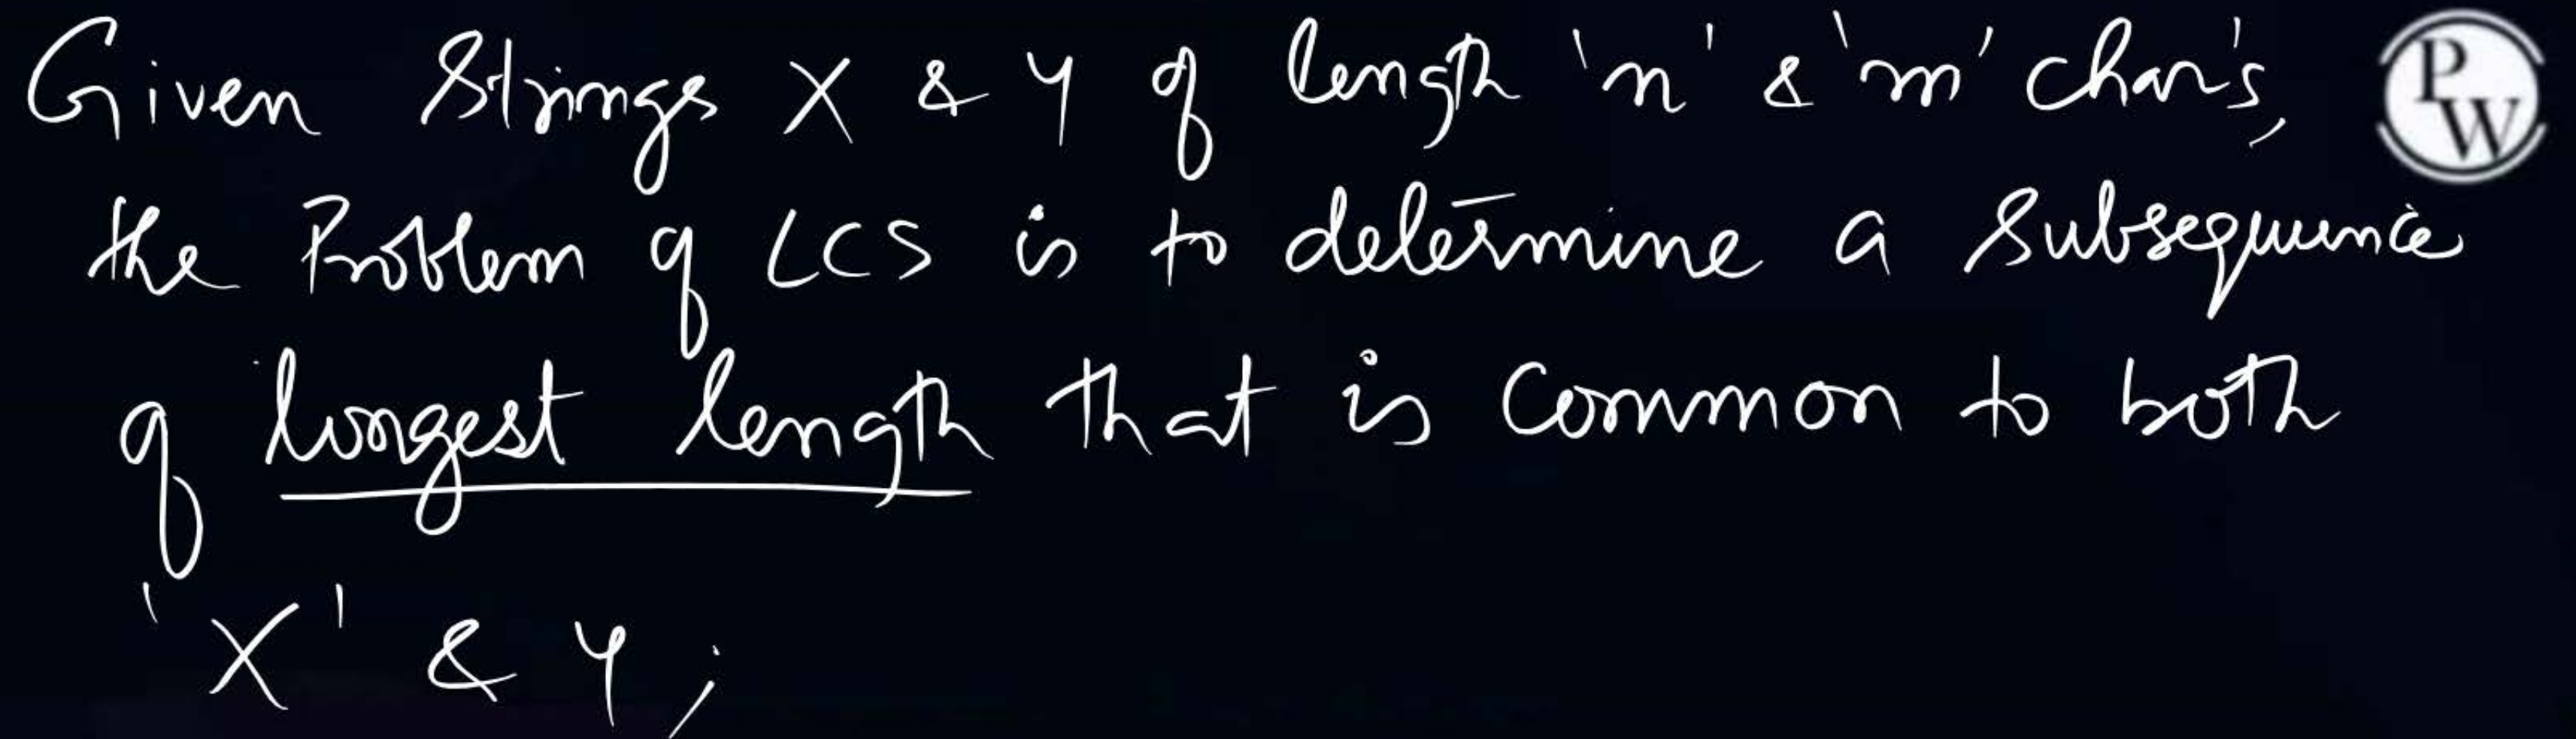 Given Strings X & Y of length 'n' & 'm' char's,
PW
the Problem of LCS is to determine a Subsequence
of longest length that is common to both
'X' & Y;